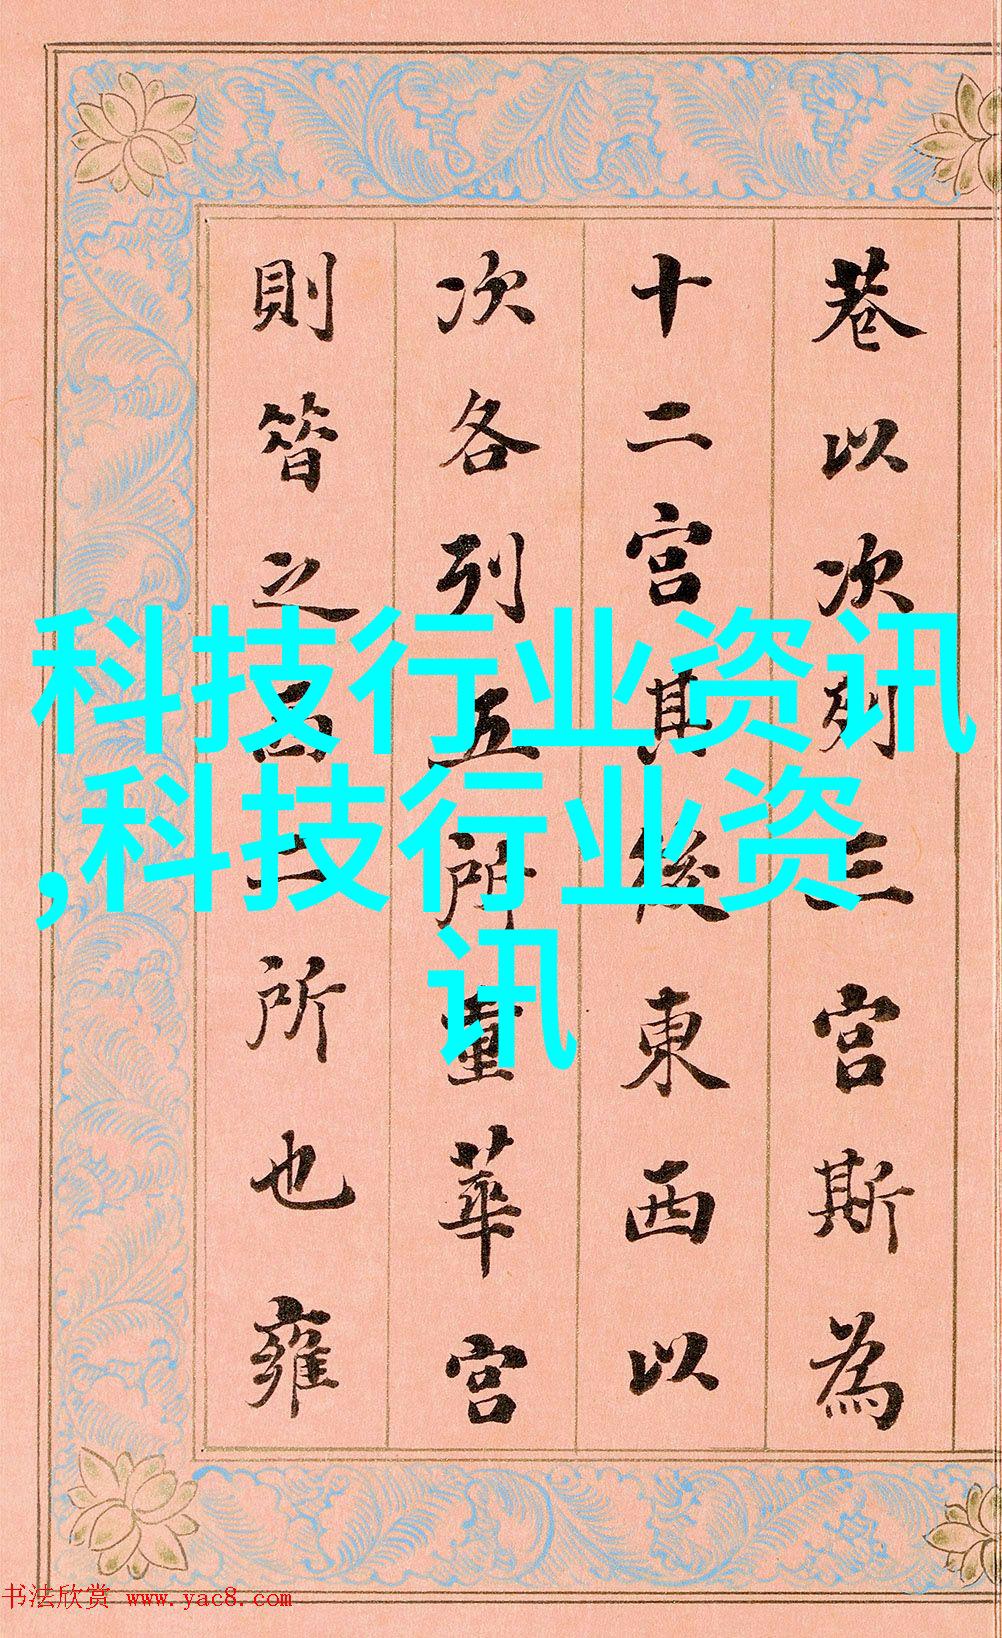 巷以次列三宫斯為
十二宫其後東西以
次各列五所重華宫
則昔之西二所也雍
科技行业资讯
,科技行业资
讯
书法欣赏 www.yac8.com